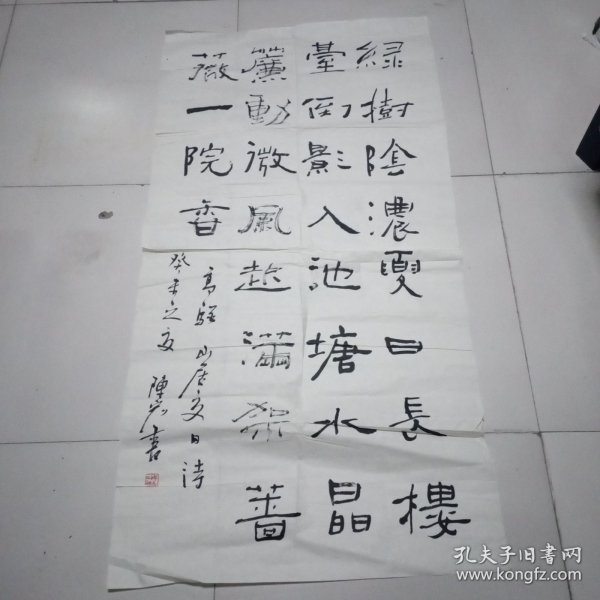 緑樹陰濃夏日長樓
臺倒影入池塘水晶
簾動微風起滿架薔
薇一院香
高駢山居夏日詩
癸未之夏陳書
孔夫子旧书网
www.kongfz.com